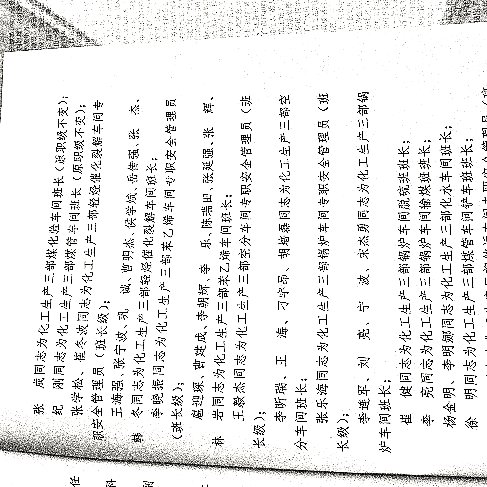 张　岚同志为化工生产三部煤化验车间班长（原职级不变）；
纪　刚同志为化工生产三部煤管车间班长（原职级不变）；
张学松、崔冬波同志为化工生产三部轻烃催化裂解车间专
职安全管理员（班长级）；
王海强、张宁波、巩　诚、曹明杰、侯学斌、岳传强、张　杰、
韩　冬同志为化工生产三部轻烃催化裂解车间班长；
李晓张同志为化工生产三部苯乙烯车间专职安全管理员
（班长级）；
扈迎琛、曹建成、李朝辉、李　乐、陈瑞田、张延强、张　辉、
林　岩同志为化工生产三部苯乙烯车间班长；
王毅杰同志为化工生产三部空分车间专职安全管理员（班
长级）；
李昕瑞、王　海、刁学昂、胡培磊同志为化工生产三部空
分车间班长；
张乐海同志为化工生产三部锅炉车间专职安全管理员（班
长级）；
李进军、刘　亮、宁　波、宋杰勇同志为化工生产三部锅
炉车间班长；
崔　健同志为化工生产三部锅炉车间脱硫班班长；
李　亮同志为化工生产三部锅炉车间输煤班班长；
杨金明、李明娜同志为化工生产三部化水车间班长；
徐　明同志为化工生产三部煤管车间铲车班班长；
任
科